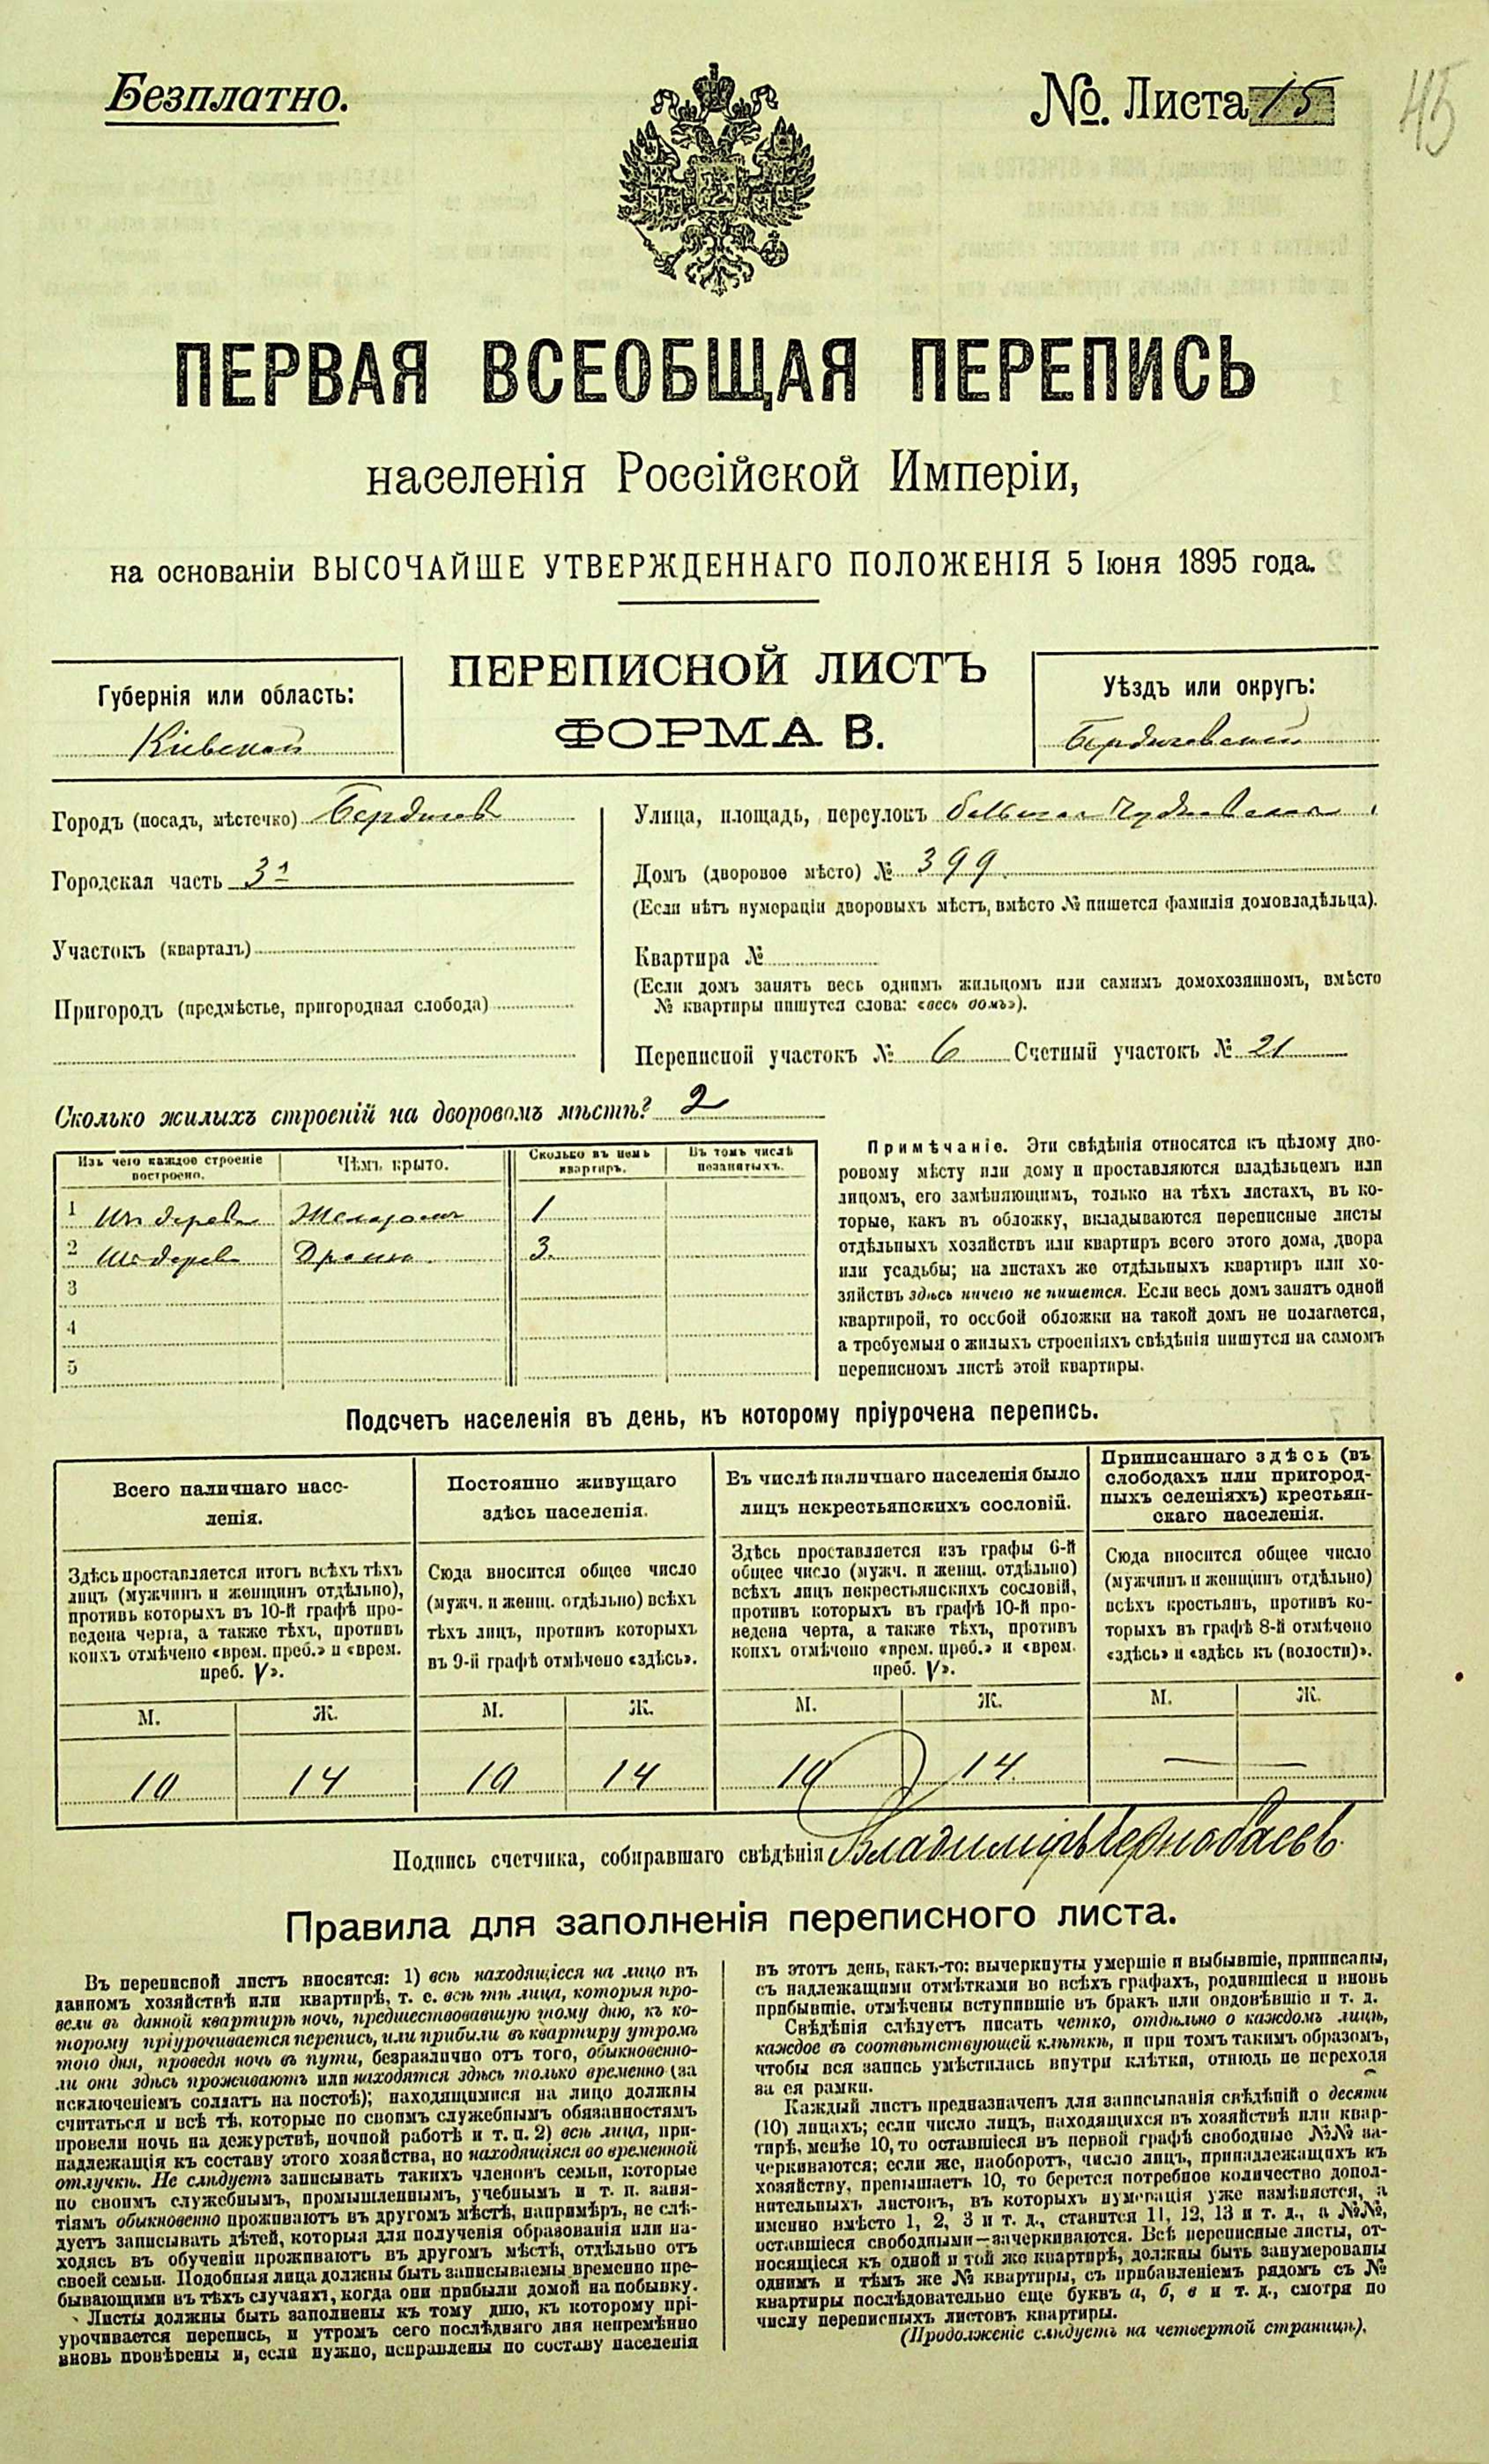 Безплатно.
№. Листа 15
45
ПЕРВАЯ ВСЕОБЩАЯ ПЕРЕПИСЬ
населенія Россійской Имперіи,
на основаніи ВЫСОЧАЙШЕ УТВЕРЖДЕННАГО ПОЛОЖЕНІЯ 5 Іюня 1895 года.
ПЕРЕПИСНОЙ ЛИСТЪ
ФОРМА В.
Губернія или область:
Кіевской
Уѣздъ или округъ:
Бердичевский
Городъ (посадъ, мѣстечко) Бердичев
Городская часть 3я
Участокъ (кварталъ)
Пригородъ (предмѣстье, пригородная слобода)
Улица, площадь, переулокъ большая Чудновская
Домъ (дворовое мѣсто) № 399
(Если нѣтъ нумораціи дворовыхъ мѣстъ, вмѣсто № пишется фамилія домовладѣльца).
Квартира №
(Если домъ занятъ весь однимъ жильцомъ или самимъ домохозяиномъ, вмѣсто
№ квартиры пишутся слова: «весь домъ»).
Переписной участокъ № 6 Счетный участокъ № 21
Сколько жилыхъ строеній на дворовомъ мѣстѣ? 2
Изъ чего каждое строеніе построено.
Чѣмъ крыто.
Сколько въ немъ квартиръ.
Въ томъ числѣ незанятыхъ.
1 Из дерева 1
2 Из дерев 3.
3
4
5
Примѣчаніе. Эти свѣдѣнія относятся къ цѣлому дво-
ровому мѣсту или дому и проставляются владѣльцемъ или
лицомъ, его замѣняющимъ, только на тѣхъ листахъ, въ ко-
торые, какъ въ обложку, вкладываются переписные листы
отдѣльныхъ хозяйствъ или квартиръ всего этого дома, двора
или усадьбы; на листахъ же отдѣльныхъ квартиръ или хо-
зяйствъ здѣсь ничего не пишется. Если весь домъ занятъ одной
квартирой, то особой обложки на такой домъ не полагается,
а требуемыя о жилыхъ строеніяхъ свѣдѣнія пишутся на самомъ
переписномъ листѣ этой квартиры.
Подсчетъ населенія въ день, къ которому пріурочена перепись.
Всего наличнаго насе-
ленія.
Здѣсь проставляется итогъ всѣхъ тѣхъ
лицъ (мужчинъ и женщинъ отдѣльно),
противъ которыхъ въ 10-й графѣ про-
ведена черта, а также тѣхъ, противъ
коихъ отмѣчено «врем. преб.» и «врем.
преб. V».
М. Ж.
10 14
Постоянно живущаго
здѣсь населенія.
Сюда вносится общее число
(мужч. и женщ. отдѣльно) всѣхъ
тѣхъ лицъ, противъ которыхъ
въ 9-й графѣ отмѣчено «здѣсь».
М. Ж.
10 14
Въ числѣ наличнаго населенія было
лицъ некрестьянскихъ сословій.
Здѣсь проставляется изъ графы 6-й
общее число (мужч. и женщ. отдѣльно)
всѣхъ лицъ некрестьянскихъ сословій,
противъ которыхъ въ графѣ 10-й про-
ведена черта, а также тѣхъ, противъ
коихъ отмѣчено «врем. преб.» и «врем.
преб. V».
М. Ж.
10 14.
Приписаннаго здѣсь (въ
слободахъ или пригород-
ныхъ селеніяхъ) крестьян-
скаго населенія.
Сюда вносится общее число
(мужчинъ и женщинъ отдѣльно)
всѣхъ крестьянъ, противъ ко-
торыхъ въ графѣ 8-й отмѣчено
«здѣсь» и «здѣсь къ (волости)».
М. Ж.
— —
Подпись счетчика, собиравшаго свѣдѣнія Владиміръ Чернобаевъ.
Правила для заполненія переписного листа.
Въ переписной листъ вносятся: 1) всѣ находящіеся на лицо въ
данномъ хозяйствѣ или квартирѣ, т. е. всѣ тѣ лица, которыя про-
вели въ данной квартирѣ ночь, предшествовавшую тому дню, къ ко-
торому пріурочивается перепись, или прибыли въ квартиру утромъ
того дня, проведя ночь въ пути, безразлично отъ того, обыкновенно-
ли они здѣсь проживаютъ или находятся здѣсь только временно (за
исключеніемъ солдатъ на постоѣ); находящимися на лицо должны
считаться и всѣ тѣ, которые по своимъ служебнымъ обязанностямъ
провели ночь на дежурствѣ, ночной работѣ и т. п. 2) всѣ лица, при-
надлежащія къ составу этого хозяйства, но находящіяся во временной
отлучкѣ. Не слѣдуетъ записывать такихъ членовъ семьи, которые
по своимъ служебнымъ, промышленнымъ, учебнымъ и т. п. заня-
тіямъ обыкновенно проживаютъ въ другомъ мѣстѣ, напримѣръ, не слѣ-
дуетъ записывать дѣтей, которыя для полученія образованія или на-
ходясь въ обученіи проживаютъ въ другомъ мѣстѣ, отдѣльно отъ
своей семьи. Подобныя лица должны быть записываемы временно пре-
бывающими въ тѣхъ случаяхъ, когда они прибыли домой на побывку.
Листы должны быть заполнены къ тому дню, къ которому прі-
урочивается перепись, и утромъ сего послѣдняго дня непремѣнно
вновь провѣрены и, если нужно, исправлены по составу населенія
въ этотъ день, какъ-то: вычеркнуты умершіе и выбывшіе, приписаны,
съ надлежащими отмѣтками во всѣхъ графахъ, родившіеся и вновь
прибывшіе, отмѣчены вступившіе въ бракъ или овдовѣвшіе и т. д.
Свѣдѣнія слѣдуетъ писать четко, отдѣльно о каждомъ лицѣ,
каждое въ соотвѣтствующей клѣткѣ, и при томъ такимъ образомъ,
чтобы вся запись умѣстилась внутри клѣтки, отнюдь не переходя
за ея рамки.
Каждый листъ предназначенъ для записыванія свѣдѣній о десяти
(10) лицахъ; если число лицъ, находящихся въ хозяйствѣ или квар-
тирѣ, менѣе 10, то оставшіеся въ первой графѣ свободные №№ за-
черкиваются; если же, наоборотъ, число лицъ, принадлежащихъ къ
хозяйству, превышаетъ 10, то берется потребное количество допол-
нительныхъ листовъ, въ которыхъ нумерація уже измѣняется, а
именно вмѣсто 1, 2, 3 и т. д., ставится 11, 12, 13 и т. д., а №№,
оставшіеся свободными—зачеркиваются. Всѣ переписные листы, от-
носящіеся къ одной и той же квартирѣ, должны быть занумерованы
однимъ и тѣмъ же № квартиры, съ прибавленіемъ рядомъ съ №
квартиры послѣдовательно еще буквъ а, б, в и т. д., смотря по
числу переписныхъ листовъ квартиры.
(Продолженіе слѣдуетъ на четвертой страницѣ).